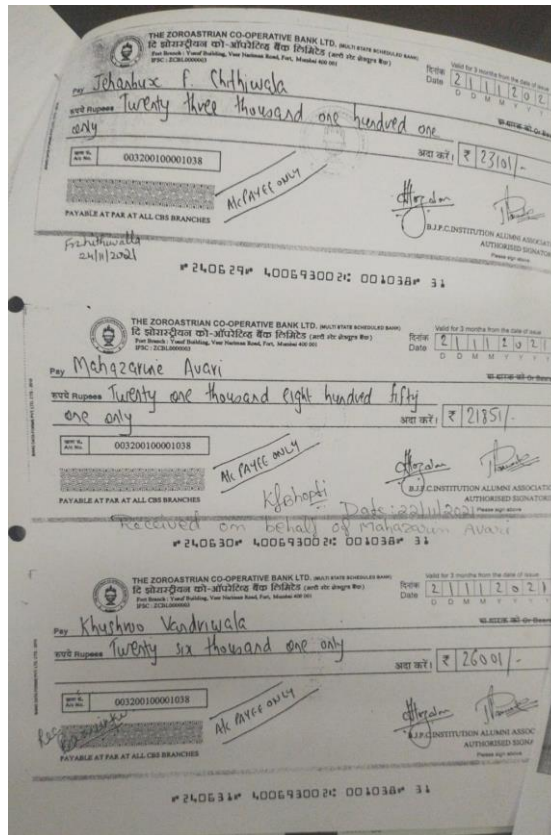 THE ZOROASTRIAN CO-OPERATIVE BANK LTD. (MULTI STATE SCHEDULED BANK)
दि झोराष्ट्रीयन को-ऑपरेटिव्ह बैंक लिमिटेड
Fort Branch : Yusuf Building, Veer Nariman Road, Fort, Mumbai 400 001
IFSC : ZCBL0000003
Valid for 3 months from the date of issue
दिनांक
Date 2 1 1 1 2 0 2
D D M M Y Y Y
Pay Jehanbux F. Chithiwala
रुपये Rupees Twenty three thousand one hundred one
only
अदा करें। ₹ 23101/-
A/c No. 003200100001038
A/C PAYEE ONLY
PAYABLE AT PAR AT ALL CBS BRANCHES
B.J.P.C.INSTITUTION ALUMNI ASSOCIAT
AUTHORISED SIGNATOR
Please sign above
24/11/2021
⑈240629⑈ 400693002⑆ 001038⑈ 31
THE ZOROASTRIAN CO-OPERATIVE BANK LTD. (MULTI STATE SCHEDULED BANK)
दि झोराष्ट्रीयन को-ऑपरेटिव्ह बैंक लिमिटेड
Fort Branch : Yusuf Building, Veer Nariman Road, Fort, Mumbai 400 001
IFSC : ZCBL0000003
Valid for 3 months from the date of issue
दिनांक
Date 2 1 1 1 2 0 2 1
D D M M Y Y Y Y
Pay Mahazarine Avari
रुपये Rupees Twenty one thousand eight hundred fifty
one only
अदा करें। ₹ 21851/-
A/c No. 003200100001038
A/C PAYEE ONLY
PAYABLE AT PAR AT ALL CBS BRANCHES
B.J.P.C.INSTITUTION ALUMNI ASSOCIATI
AUTHORISED SIGNATOR
Please sign above
Date: 22/11/2021
Received on behalf of Mahazarin Avari
⑈240630⑈ 400693002⑆ 001038⑈ 31
THE ZOROASTRIAN CO-OPERATIVE BANK LTD. (MULTI STATE SCHEDULED BANK)
दि झोराष्ट्रीयन को-ऑपरेटिव्ह बैंक लिमिटेड
Fort Branch : Yusuf Building, Veer Nariman Road, Fort, Mumbai 400 001
IFSC : ZCBL0000003
Valid for 3 months from the date of issue
दिनांक
Date 2 1 1 1 2 0 2 1
D D M M Y Y Y
Pay Khushroo Vandriwala
रुपये Rupees Twenty six thousand one only
अदा करें। ₹ 26001/-
A/c No. 003200100001038
A/C PAYEE ONLY
PAYABLE AT PAR AT ALL CBS BRANCHES
B.J.P.C.INSTITUTION ALUMNI ASSOC
AUTHORISED SIGNA
Please sign above
⑈240631⑈ 400693002⑆ 001038⑈ 31